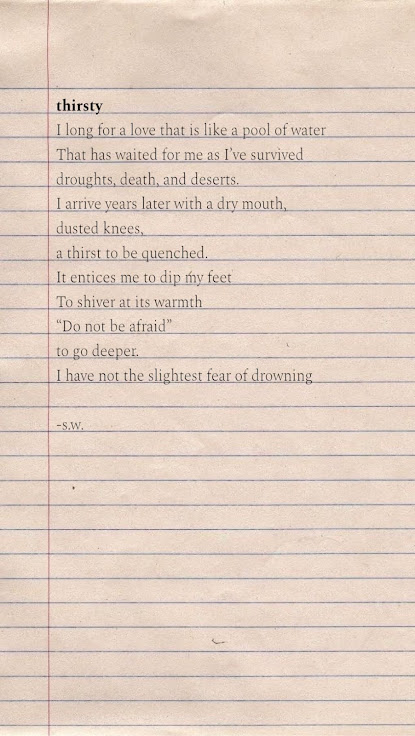 thirsty
I long for a love that is like a pool of water
That has waited for me as I’ve survived
droughts, death, and deserts.
I arrive years later with a dry mouth,
dusted knees,
a thirst to be quenched.
It entices me to dip my feet
To shiver at its warmth
“Do not be afraid”
to go deeper.
I have not the slightest fear of drowning
-s.w.